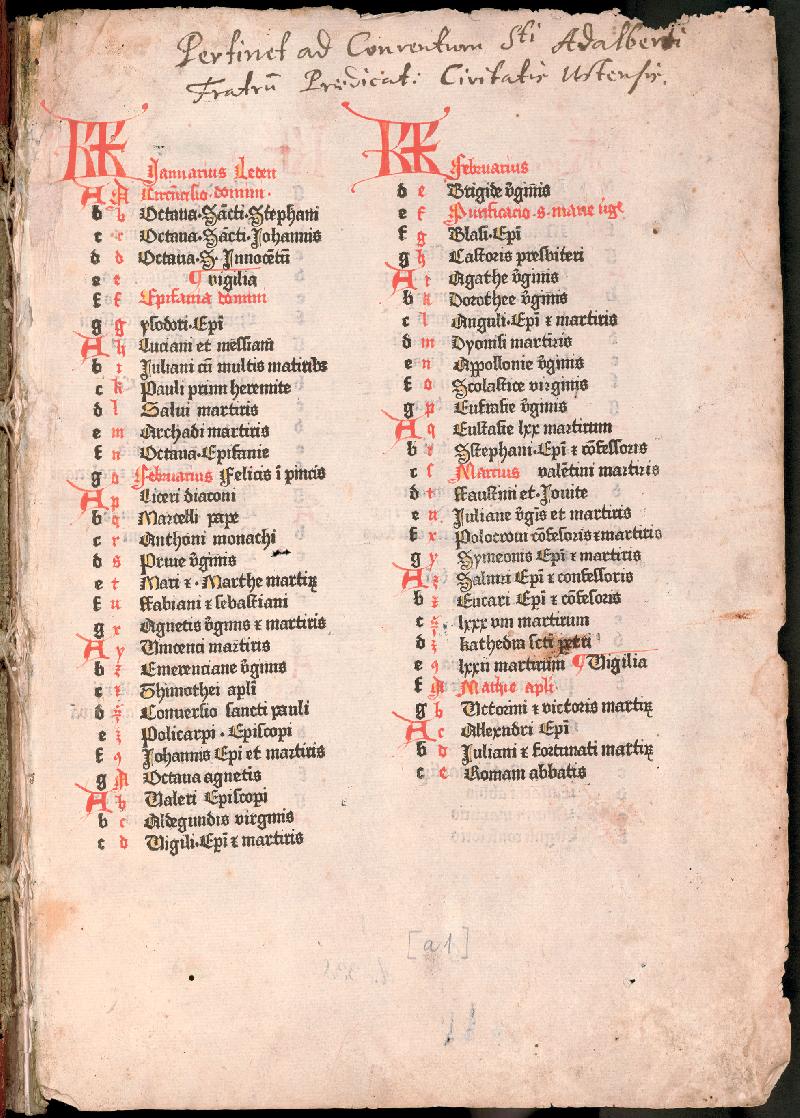 Pertinet ad Conventum Sti Adalberti
Fratrū Prædicat: Civitatis Ustensis.
KK Januarius Leden
A A Circūcisio domini.
b b Octava Sācti Stephani
c c Octava Sācti Johannis
d d Octava S Innocētū
e e ¶ vigilia
f f Epifania domini
g g ysodori Epī
A h Luciani et messiani
b i Juliani cū multis
c k Pauli primi heremite
d l Salui martiris
e m Archadi martiris
f n Octava Epifanie
g o Februarius Felicis ī pincis
A p Liceri diaconi
b q Marcelli pape
c r Anthoni monachi
d s Prisce v̄ginis
e t Mari ⁊ Marthe martiꝝ
f u Fabiani ⁊ sebastiani
g x Agnetis v̄ginis ⁊ martiris
A y Vincenci martiris
b z Emerenciane v̄ginis
c Thimothei apli
d Conuersio sancti pauli
e Policarpi Episcopi
f 9 Johannis Epī et martiris
g A Octaua agnetis
A b Valeri Episcopi
b c Aldegundis virginis
c d Vigili Epī ⁊ martiris
KK Februarius
d e Brigide v̄ginis
e f Purificacio s marie
f g Blasi Epī
g h Castoris presbiteri
A i Agathe v̄ginis
b k Dorothee v̄ginis
c l Anguli Epī ⁊ martiris
d m Dyonisi martiris
e n Appollonie v̄ginis
f o Scolastice virginis
g p Eufrasie v̄ginis
A q Eulasie lxx martirum
b r Sstephani Epī ⁊ cōfessoris
c s Marcius valētini martiris
d t Faustini et Jouite
e u Juliane v̄gīs et martiris
f x cōfesoris ⁊ martiris
g y Symeonis Epī ⁊ martiris
A z Saluini Epī ⁊ confessoris
b Eucari Epī ⁊ cōfesoris
c martirum
d kathedra scti petri
e 9 lxxii martirum ¶ Vigilia
f A Mathie apli
g b Victorini ⁊ victoris martiꝝ
A c Allexandri Epī
b d Juliani ⁊ fortunati martiꝝ
c e Romani abbatis
[a1]